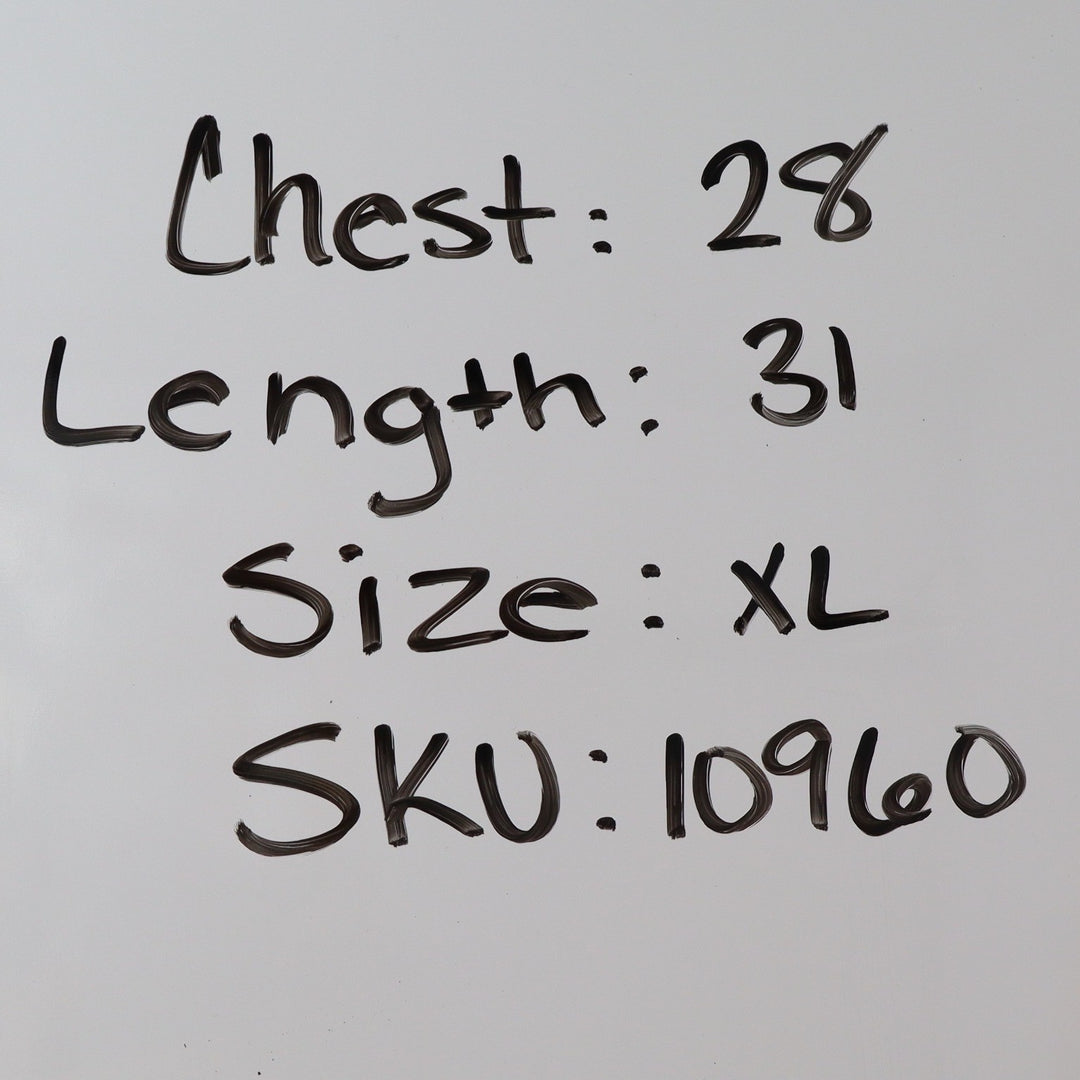 Chest: 28
Length: 31
Size: XL
SKU: 10960